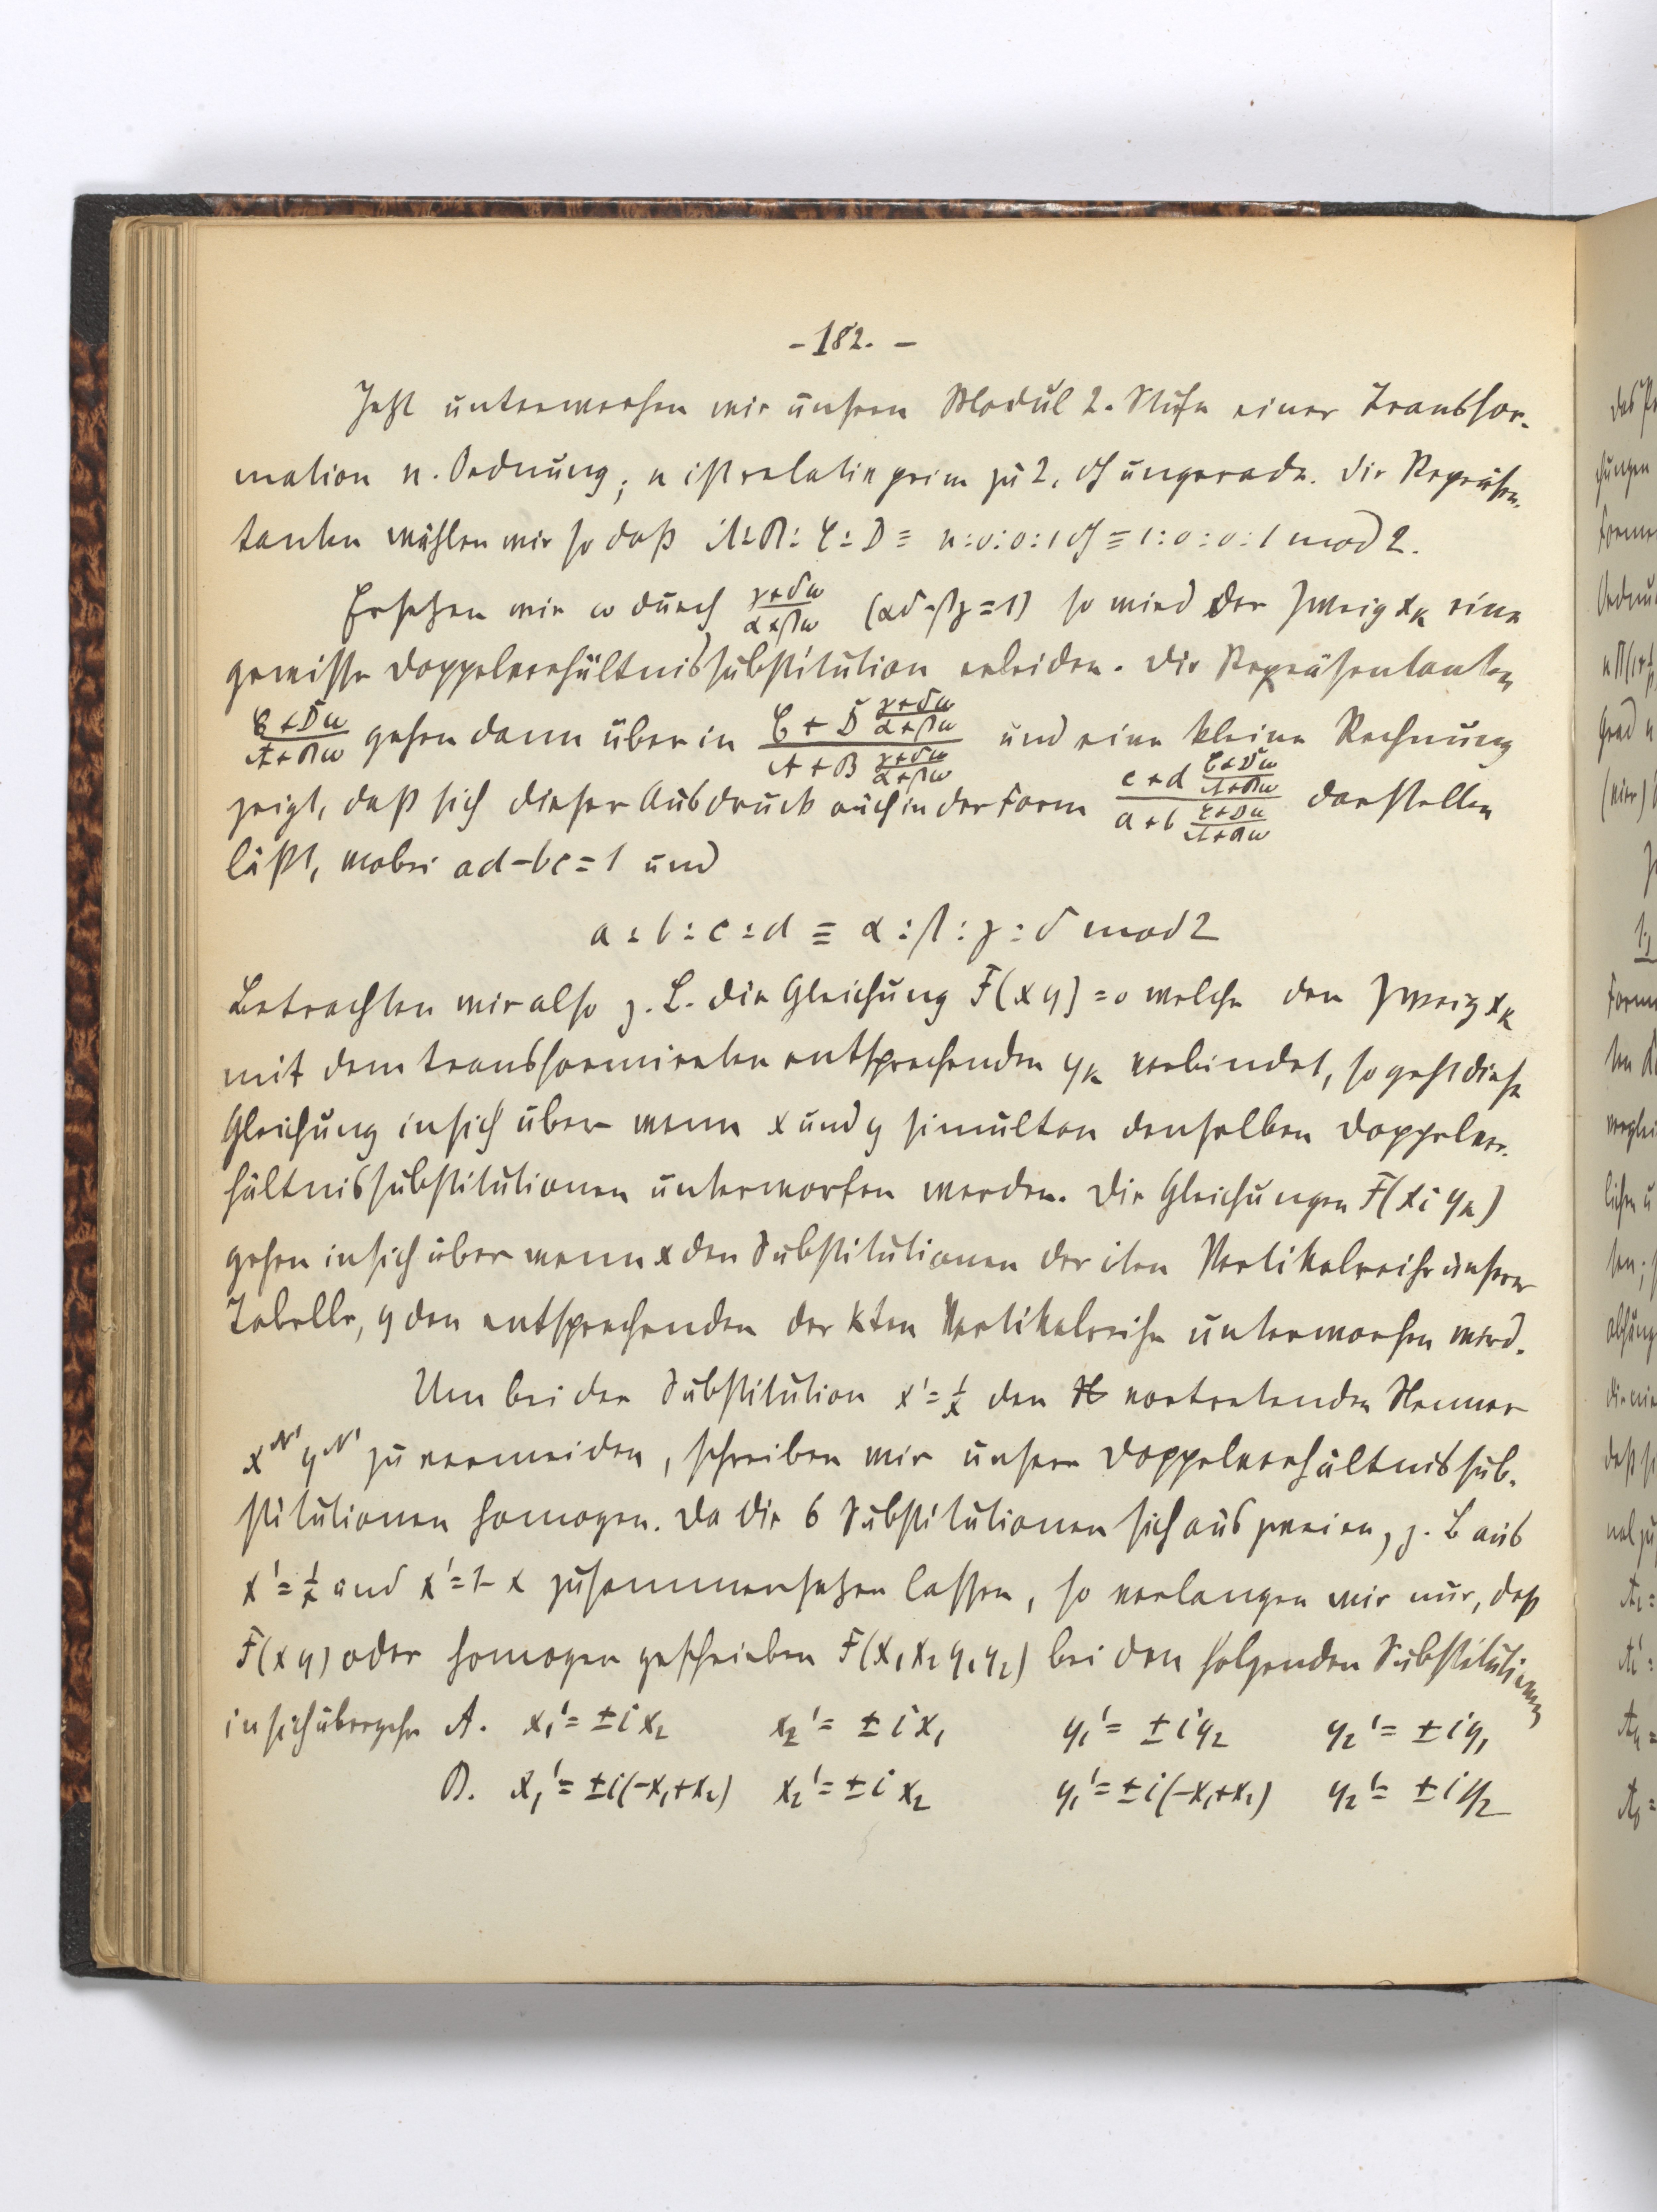 - 182. -
Jetzt unterwerfen wir unsern Modul 2. Stufe einer Transfor-
mation n. Ordnung; n ist relativ prim zu 2, dh ungerade. Die Repräsen-
tanten wählen wir so daß A:B:C:D ≡ n:0:0:1 dh ≡ 1:0:0:1 mod 2.
Ersetzen wir ω durch (γ+δω)/(α+βω) (αδ-βγ=1) so wird der Zweig x_k eine
gewisse Doppelverhältnissubstitution erleiden. Die Repräsentanten
(C+Dω)/(A+Bω) gehen dann über in (C + D (γ+δω)/(α+βω))/(A + B (γ+δω)/(α+βω)) und eine kleine Rechnung
zeigt, daß sich dieser Ausdruck auch in der Form (c+d (C+Dω)/(A+Bω))/(a+b (C+Dω)/(A+Bω)) darstellen
läßt, wobei ad-bc=1 und
a:b:c:d ≡ α:β:γ:δ mod 2
Betrachten wir also z. B. die Gleichung F(xy)=0 welche den Zweig x_k
mit dem transformirten entsprechenden y_k verbindet, so geht diese
Gleichung in sich über wenn x und y simultan denselben Doppelver-
hältnissubstitutionen unterworfen werden. Die Gleichungen F(x_i y_k)
gehen in sich über wenn x den Substitutionen der iten Vertikalreihe unserer
Tabelle, y den entsprechenden der kten Vertikalreihe unterworfen wird.
Um bei der Substitution x'=1/x den vortretenden Nenner
x^N' y^N' zu vermeiden, schreiben wir unsere Doppelverhältnissub-
stitutionen homogen. Da die 6 Substitutionen sich aus zweien, z. B aus
x'=1/x und x'=1-x zusammensetzen lassen, so verlangen wir nur, daß
F(xy) oder homogen geschrieben F(x₁x₂y₁y₂) bei den folgenden Substitutionen
in sich übergehe A. x₁'=±ix₂ x₂'=±ix₁ y₁'=±iy₂ y₂'=±iy₁
B. x₁'=±i(-x₁+x₂) x₂'=±ix₂ y₁'=±i(-x₁+x₂) y₂'=±iy₂